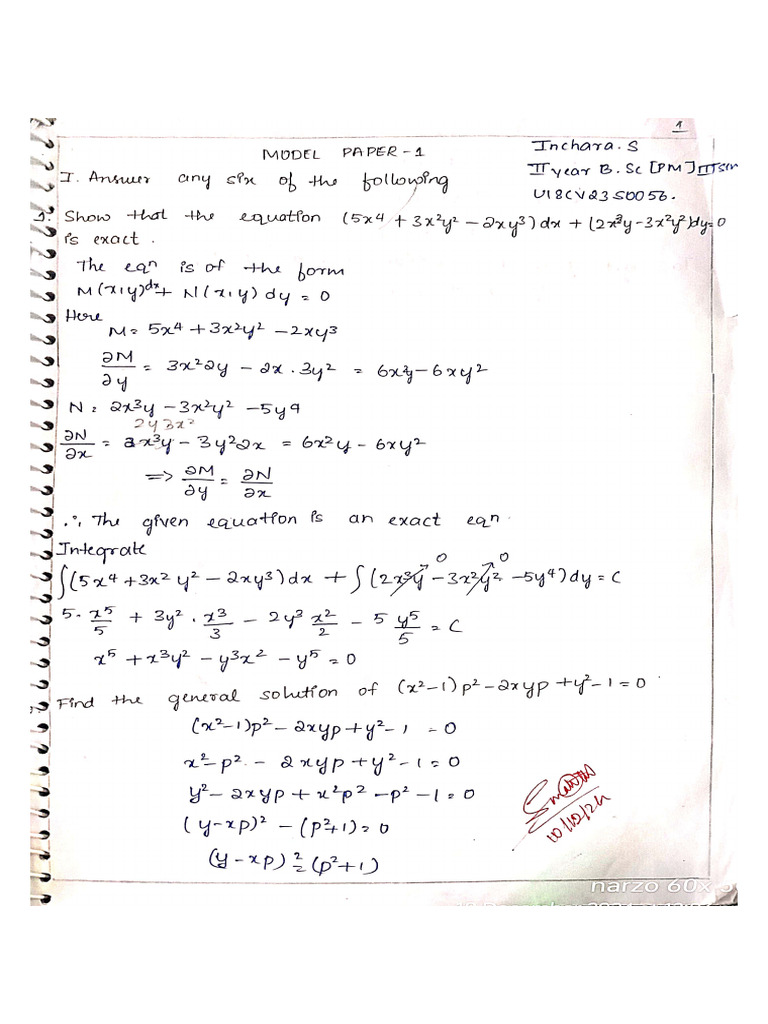 1
MODEL PAPER-1
Inchara.S
II year B.Sc [PM] III sem
U18CV23S0056.
I. Answer any six of the following
1. Show that the equation (5x4 + 3x2y2 - 2xy3) dx + (2x3y - 3x2y2) dy=0
is exact.
The eqn is of the form
M(x,y)dx + N(x,y) dy = 0
Here
M = 5x4 + 3x2y2 - 2xy3
∂M/∂y = 3x2 2y - 2x . 3y2 = 6x2y - 6xy2
N = 2x3y - 3x2y2 - 5y4
2y3x2
∂N/∂x = 2x3y - 3y2 2x = 6x2y - 6xy2
=> ∂M/∂y = ∂N/∂x
∴ The given equation is an exact eqn.
Integrate
0 0
∫(5x4 + 3x2 y2 - 2xy3) dx + ∫(2x3y - 3x2y2 - 5y4) dy = C
5. x5/5 + 3y2 . x3/3 - 2y3 x2/2 - 5 y5/5 = C
x5 + x3y2 - y3x2 - y5 = 0
Find the general solution of (x2-1)p2 - 2xyp + y2-1 = 0
(x2-1)p2 - 2xyp + y2-1 = 0
x2-p2 - 2xyp + y2-1 = 0
y2 - 2xyp + x2p2 - p2 - 1 = 0
(y-xp)2 - (p2+1) = 0
(y-xp)2 = (p2+1)
10/12/24
narzo 60x 5